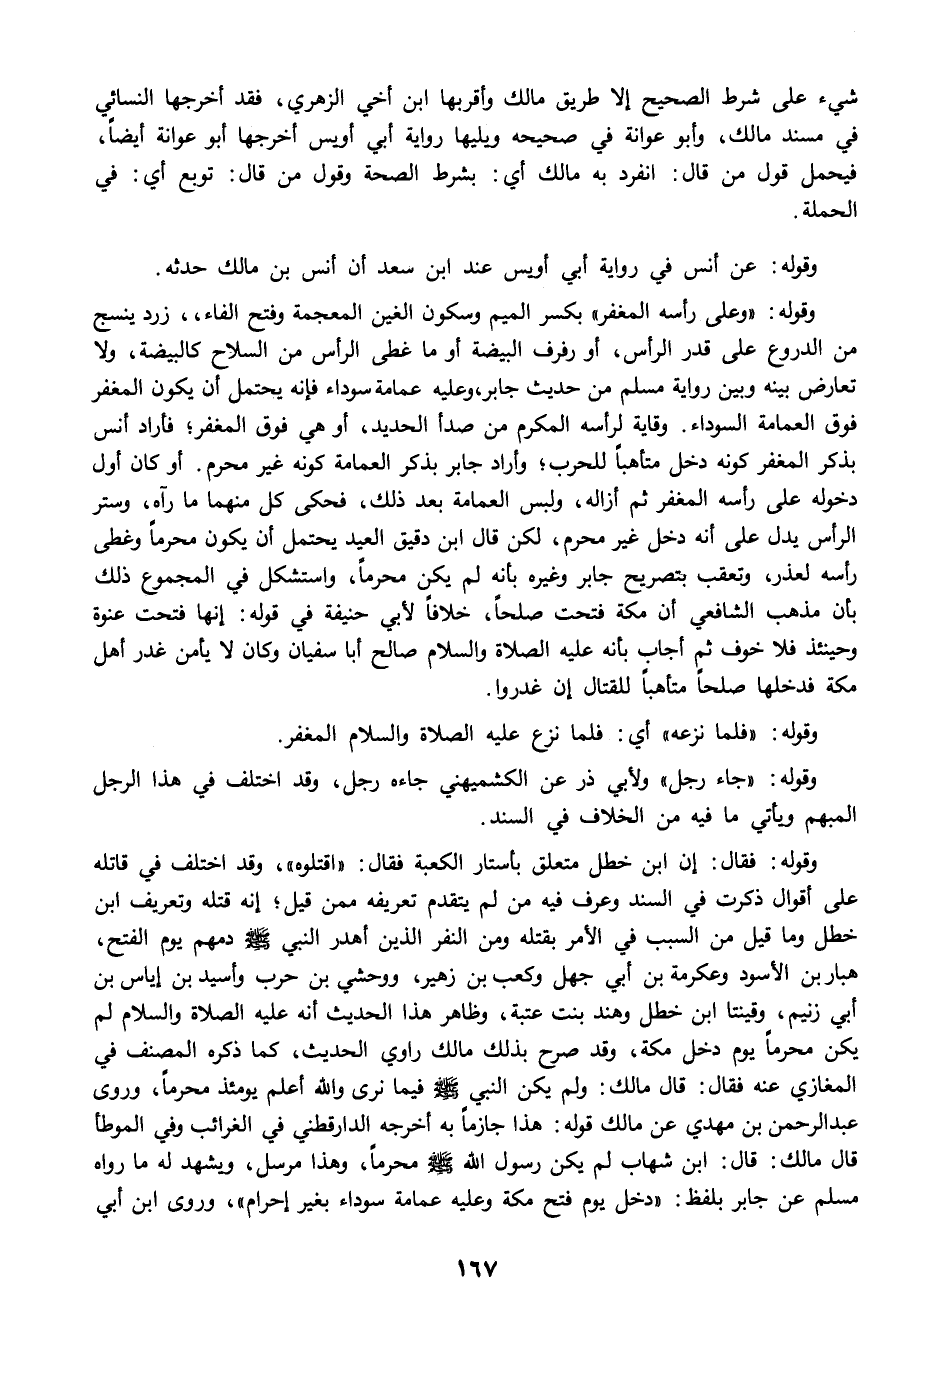 شيء على شرط الصحيح إلا طريق مالك وأقربها ابن أخي الزهري، فقد أخرجها النسائي
في مسند مالك، وأبو عوانة في صحيحه ويليها رواية أبي أويس أخرجها أبو عوانة أيضاً،
فيحمل قول من قال: انفرد به مالك أي: بشرط الصحة وقول من قال: توبع أي: في
الحملة.
وقوله: عن أنس في رواية أبي أويس عند ابن سعد أن أنس بن مالك حدثه.
وقوله: «وعلى رأسه المغفر» بكسر الميم وسكون الغين المعجمة وفتح الفاء،، زرد ينسج
من الدروع على قدر الرأس، أو رفرف البيضة أو ما غطى الرأس من السلاح كالبيضة، ولا
تعارض بينه وبين رواية مسلم من حديث جابر،وعليه عمامة سوداء فإنه يحتمل أن يكون المغفر
فوق العمامة السوداء. وقاية لرأسه المكرم من صدأ الحديد، أو هي فوق المغفر؛ فأراد أنس
بذكر المغفر كونه دخل متأهباً للحرب؛ وأراد جابر بذكر العمامة كونه غير محرم. أو كان أول
دخوله على رأسه المغفر ثم أزاله، ولبس العمامة بعد ذلك، فحكى كل منهما ما رآه، وستر
الرأس يدل على أنه دخل غير محرم، لكن قال ابن دقيق العيد يحتمل أن يكون محرماً وغطى
رأسه لعذر، وتعقب بتصريح جابر وغيره بأنه لم يكن محرماً، واستشكل في المجموع ذلك
بأن مذهب الشافعي أن مكة فتحت صلحاً، خلافاً لأبي حنيفة في قوله: إنها فتحت عنوة
وحينئذ فلا خوف ثم أجاب بأنه عليه الصلاة والسلام صالح أبا سفيان وكان لا يأمن غدر أهل
مكة فدخلها صلحاً متأهباً للقتال إن غدروا.
وقوله: «فلما نزعه» أي: فلما نزع عليه الصلاة والسلام المغفر.
وقوله: «جاء رجل» ولأبي ذر عن الكشميهني جاءه رجل، وقد اختلف في هذا الرجل
المبهم ويأتي ما فيه من الخلاف في السند.
وقوله: فقال: إن ابن خطل متعلق بأستار الكعبة فقال: «اقتلوه»، وقد اختلف في قاتله
على أقوال ذكرت في السند وعرف فيه من لم يتقدم تعريفه ممن قيل؛ إنه قتله وتعريف ابن
خطل وما قيل من السبب في الأمر بقتله ومن النفر الذين أهدر النبي ﷺ دمهم يوم الفتح،
هبار بن الأسود وعكرمة بن أبي جهل وكعب بن زهير، ووحشي بن حرب وأسيد بن إياس بن
أبي زنيم، وقينتا ابن خطل وهند بنت عتبة، وظاهر هذا الحديث أنه عليه الصلاة والسلام لم
يكن محرماً يوم دخل مكة، وقد صرح بذلك مالك راوي الحديث، كما ذكره المصنف في
المغازي عنه فقال: قال مالك: ولم يكن النبي ﷺ فيما نرى والله أعلم يومئذ محرماً، وروى
عبدالرحمن بن مهدي عن مالك قوله: هذا جازماً به أخرجه الدارقطني في الغرائب وفي الموطأ
قال مالك: قال: ابن شهاب لم يكن رسول الله ﷺ محرماً، وهذا مرسل، ويشهد له ما رواه
مسلم عن جابر بلفظ: «دخل يوم فتح مكة وعليه عمامة سوداء بغير إحرام»، وروى ابن أبي
١٦٧